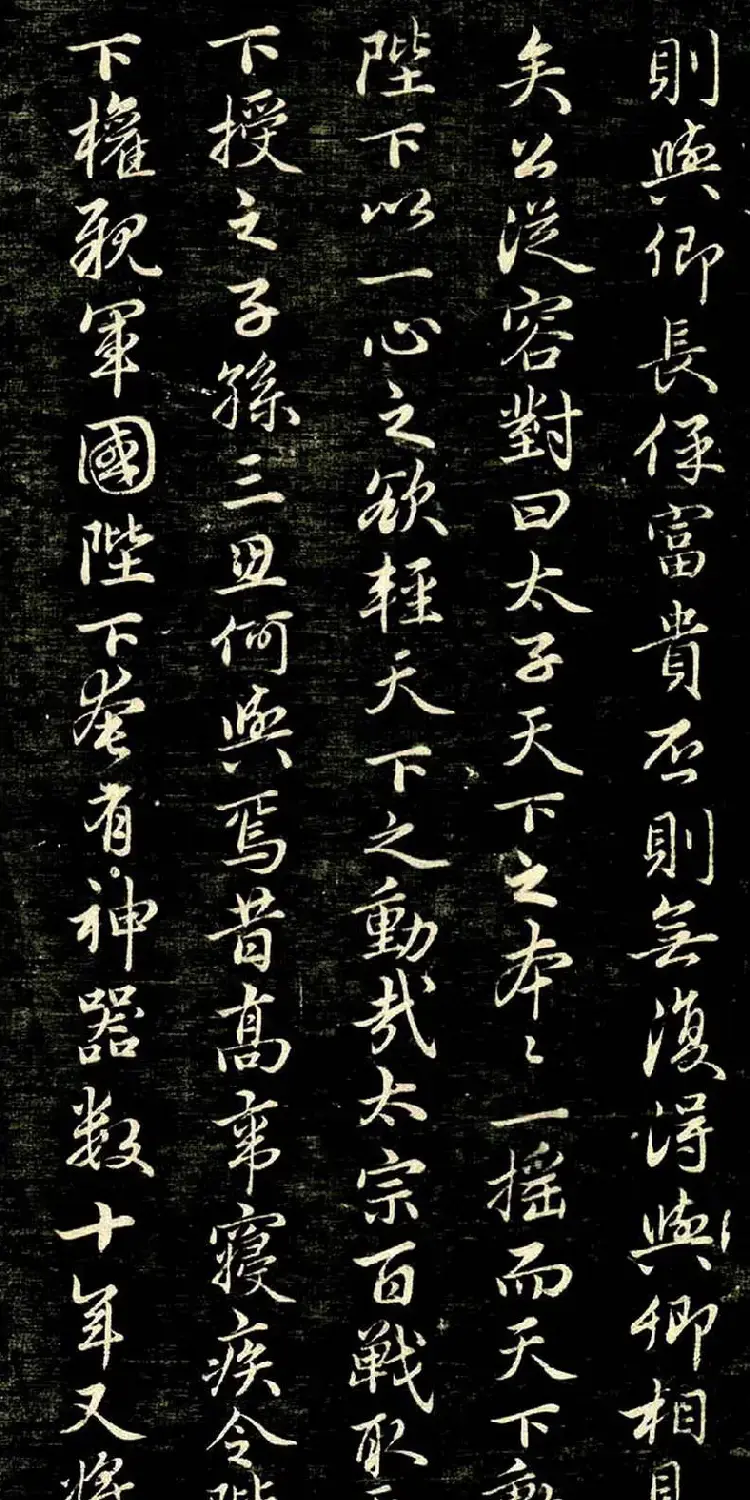 則與卿長保富貴否則無復得與卿相見
矣公從容對曰太子天下之本〻一摇而天下動
陛下以一心之欲輕天下之動哉太宗百戰取
下授之子孫三思何與焉昔高帝寢疾令陛
下權親軍國陛下奄有神器数十年又將